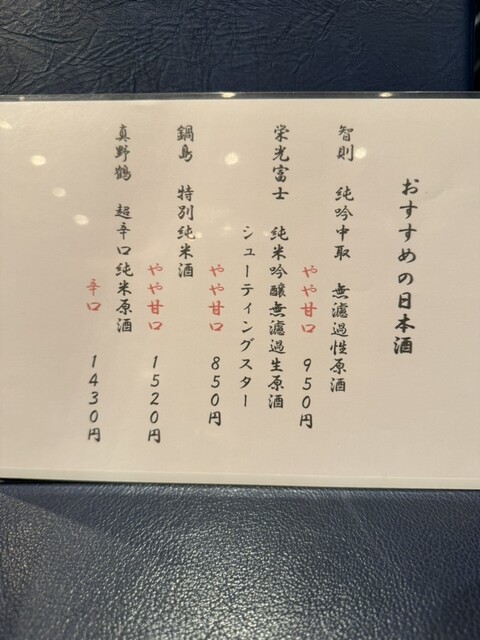 おすすめの日本酒
智則 純吟中取 無濾過性原酒
やや甘口 950円
栄光冨士 純米吟醸無濾過生原酒
シューティングスター
やや甘口 850円
鍋島 特別純米酒
やや甘口 1520円
真野鶴 超辛口純米原酒
辛口 1430円